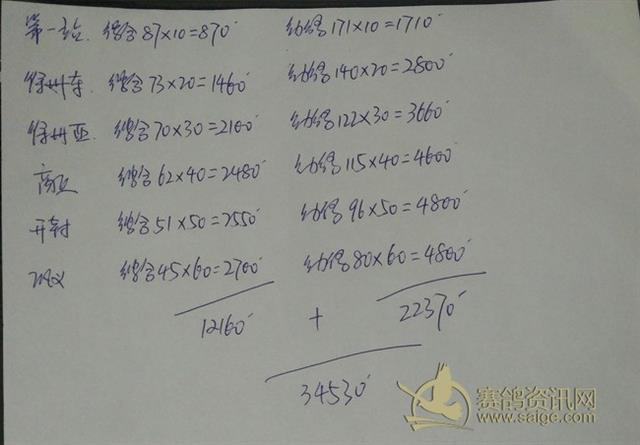 第一站. 综合87×10=870 幼鸽171×10=1710
徐州东. 综合73×20=1460 幼鸽140×20=2800
徐州亚. 综合70×30=2100 幼鸽122×30=3660
商丘 综合62×40=2480 幼鸽115×40=4600
开封 综合51×50=2550 幼鸽96×50=4800
巩义 综合45×60=2700 幼鸽80×60=4800
12160 + 22370
34530
赛鸽资讯网
www.saige.com